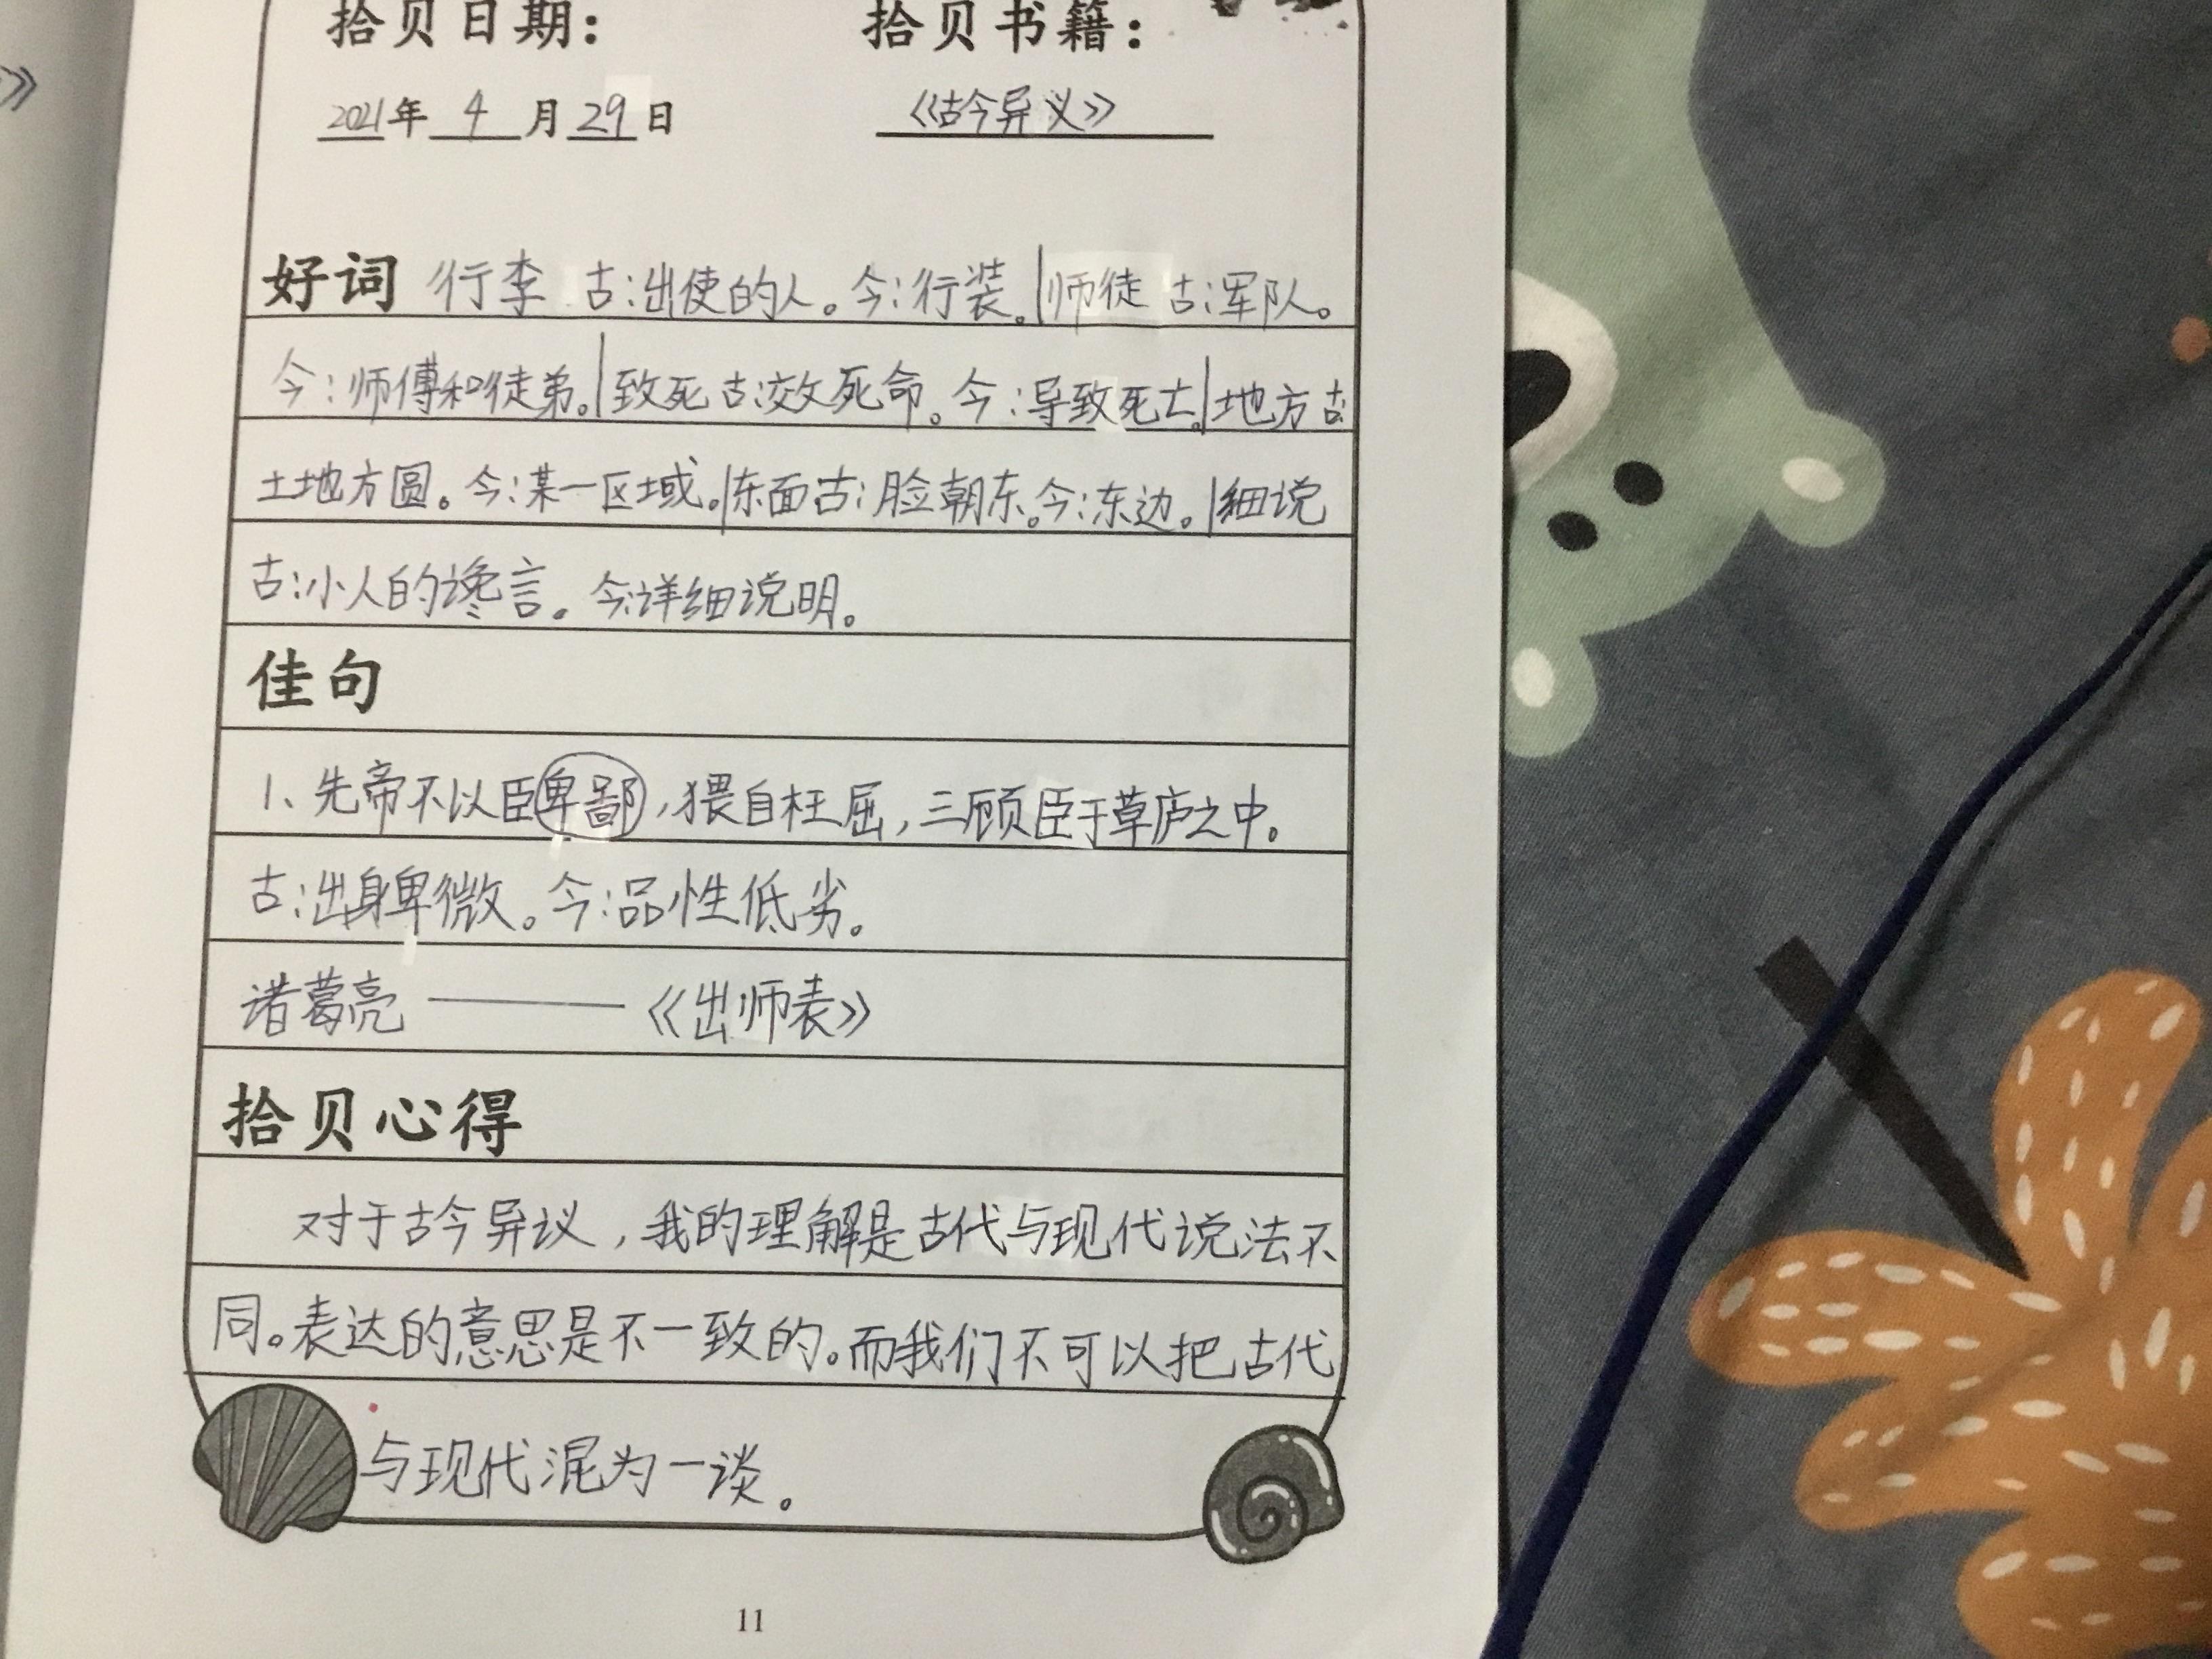 》
拾贝日期： 拾贝书籍：
2021年 4 月 29 日 《古今异义》
好词 行李 古:出使的人。今:行装。|师徒 古:军队。
今:师傅和徒弟。|致死古:效死命。今:导致死亡。|地方古:
土地方圆。今:某一区域。|东面古:脸朝东。今:东边。|细说
古:小人的谗言。今:详细说明。
佳句
1、先帝不以臣卑鄙,猥自枉屈,三顾臣于草庐之中。
古:出身卑微。今:品性低劣。
诸葛亮——《出师表》
拾贝心得
对于古今异议,我的理解是古代与现代说法不
同。表达的意思是不一致的。而我们不可以把古代
与现代混为一谈。
11